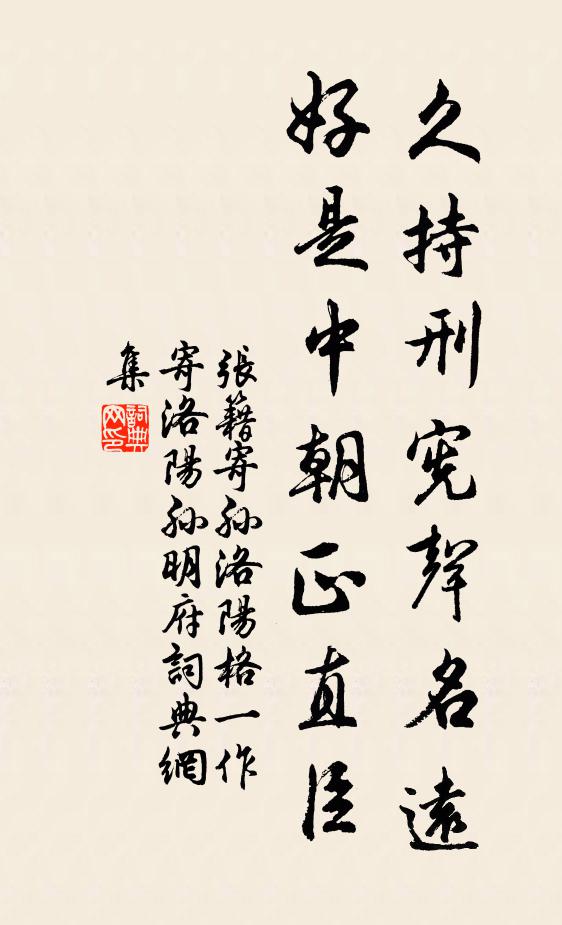 久持刑宪聲名遠
好是中朝正直臣
張籍寄孫洛陽格一作
寄洛陽孫明府詞典網
集
詞典
网印